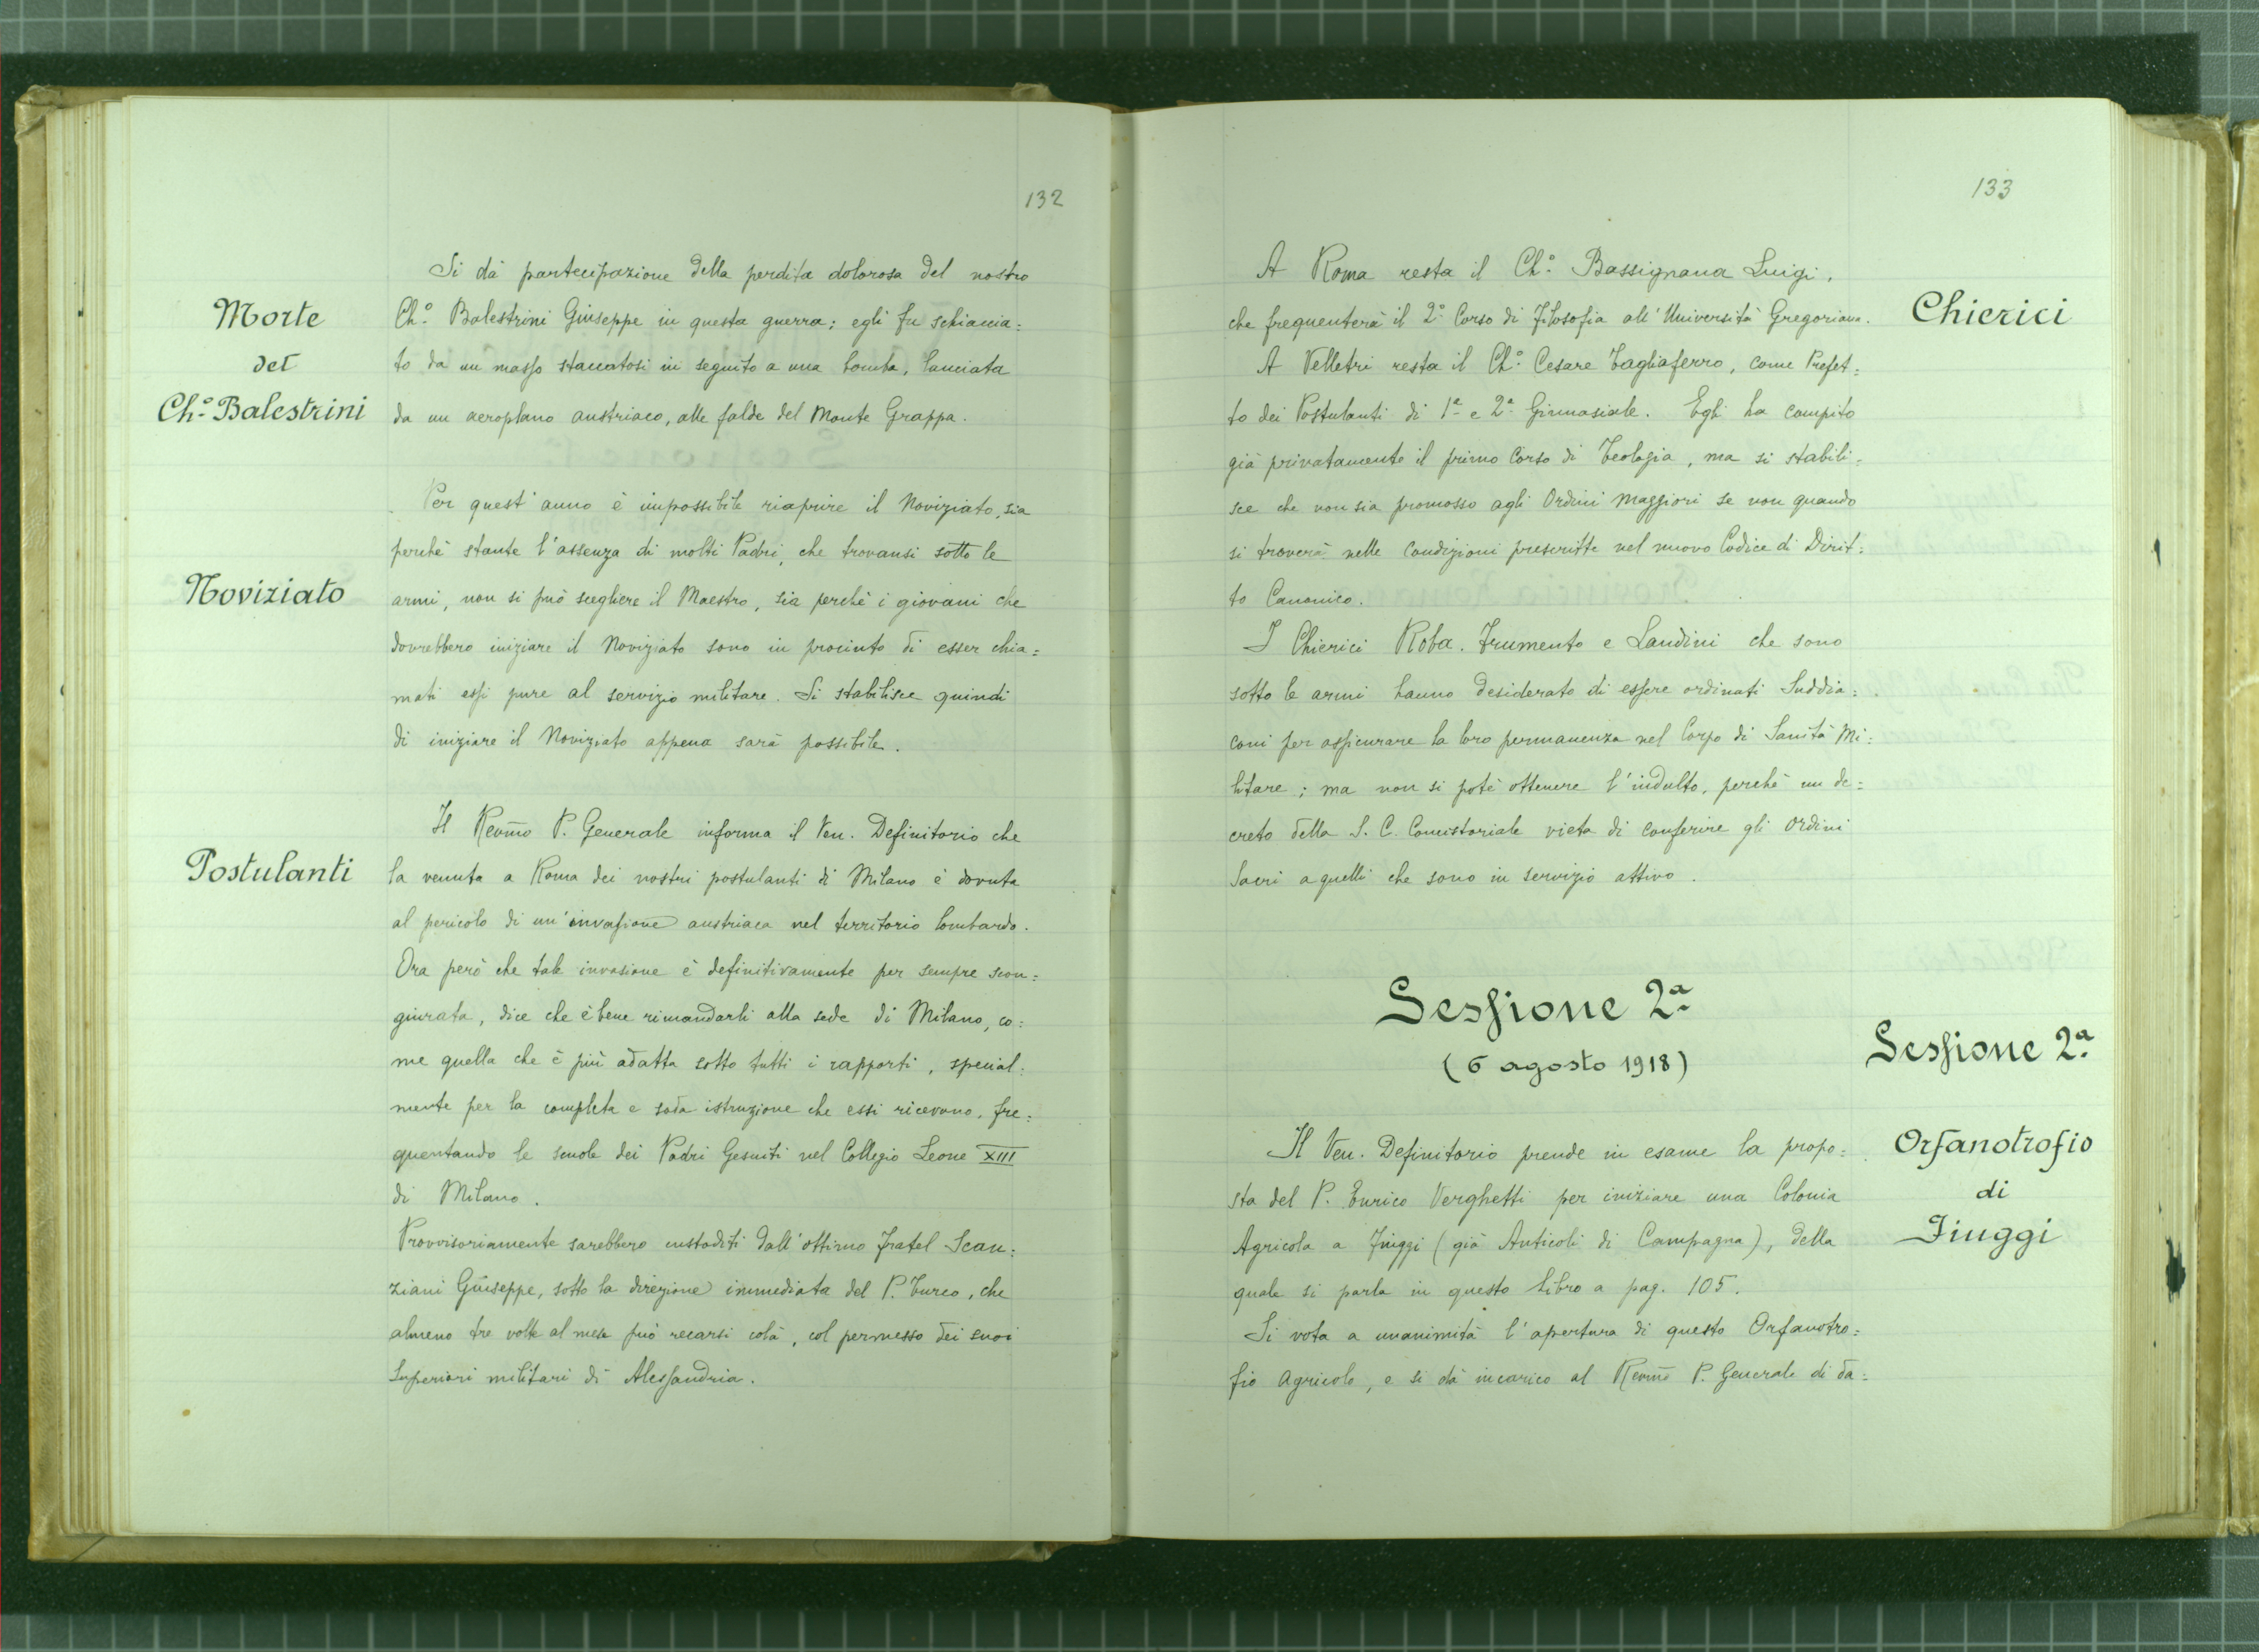 132
Si dà partecipazione della perdita dolorosa del nostro
Morte
Ch.º Balestrini Giuseppe in questa guerra; egli fu schiaccia=
del
to da un masso staccatosi in seguito a una bomba, lanciata
Ch.º Balestrini
da un aeroplano austriaco, alle falde del Monte Grappa.
Per quest'anno è impossibile riaprire il Noviziato, sia
perchè stante l'assenza di molti Padri, che trovansi sotto le
Noviziato
armi, non si può scegliere il Maestro, sia perchè i giovani che
dovrebbero iniziare il Noviziato sono in procinto di esser chia=
mati essi pure al servizio militare. Si stabilisce quindi
di iniziare il Noviziato appena sarà possibile.
Il Revm̃o P. Generale informa il Ven. Definitorio che
Postulanti
la venuta a Roma dei nostri postulanti di Milano è dovuta
al pericolo di un'invasione austriaca nel territorio lombardo.
Ora però che tale invasione è definitivamente per sempre scon=
giurata, dice che è bene rimandarli alla sede di Milano, co=
me quella che è più adatta sotto tutti i rapporti, special=
mente per la completa e soda istruzione che essi ricevono, fre=
quentando le scuole dei Padri Gesuiti nel Collegio Leone XIII
di Milano.
Provvisoriamente sarebbero custoditi dall'ottimo Fratel Scan=
ziani Giuseppe, sotto la direzione immediata del P. Turco, che
almeno tre volte al mese può recarsi colà, col permesso dei suoi
Superiori militari di Alessandria.
133
A Roma resta il Ch.º Bassignana Luigi,
Chierici
che frequenterà il 2º Corso di Filosofia all'Università Gregoriana.
A Velletri resta il Ch.º Cesare Tagliaferro, come Prefet=
to dei Postulanti di 1ª e 2ª Ginnasiale. Egli ha compito
già privatamente il primo Corso di Teologia, ma si stabili=
sce che non sia promosso agli Ordini Maggiori se non quando
si troverà nelle condizioni prescritte nel nuovo Codice di Dirit=
to Canonico.
I Chierici Roba, Frumento e Landini che sono
sotto le armi hanno desiderato di essere ordinati Suddia=
coni per assicurare la loro permanenza nel Corpo di Sanità Mi=
litare; ma non si potè ottenere l'indulto, perchè un de=
creto della S. C. Concistoriale vieta di conferire gli Ordini
Sacri a quelli che sono in servizio attivo.
Sessione 2ª
Sessione 2ª
(6 agosto 1918)
Il Ven. Definitorio prende in esame la propo=
Orfanotrofio
sta del P. Enrico Verghetti per iniziare una Colonia
di
Agricola a Fiuggi (già Anticoli di Campagna), della
Fiuggi
quale si parla in questo libro a pag. 105.
Si vota a unanimità l'apertura di questo Orfanotro=
fio Agricolo, e si dà incarico al Revm̃o P. Generale di da=